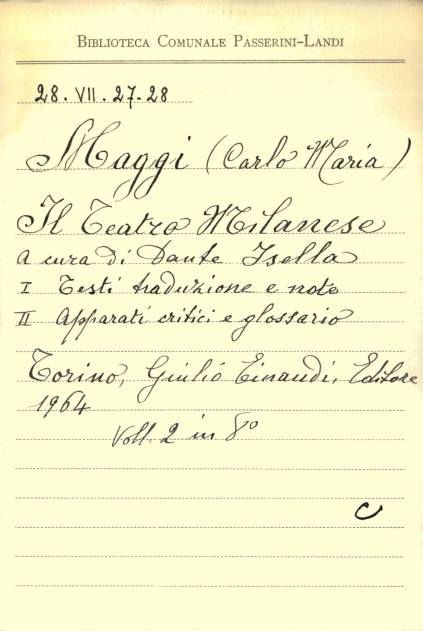 BIBLIOTECA COMUNALE PASSERINI-LANDI
28. VII. 27-28
Maggi (Carlo Maria)
Il Teatro Milanese
a cura di Dante Isella
I Testi traduzione e note
II Apparati critici e glossario
Torino, Giulio Einaudi, Editore
1964
Voll. 2 in 8º
C